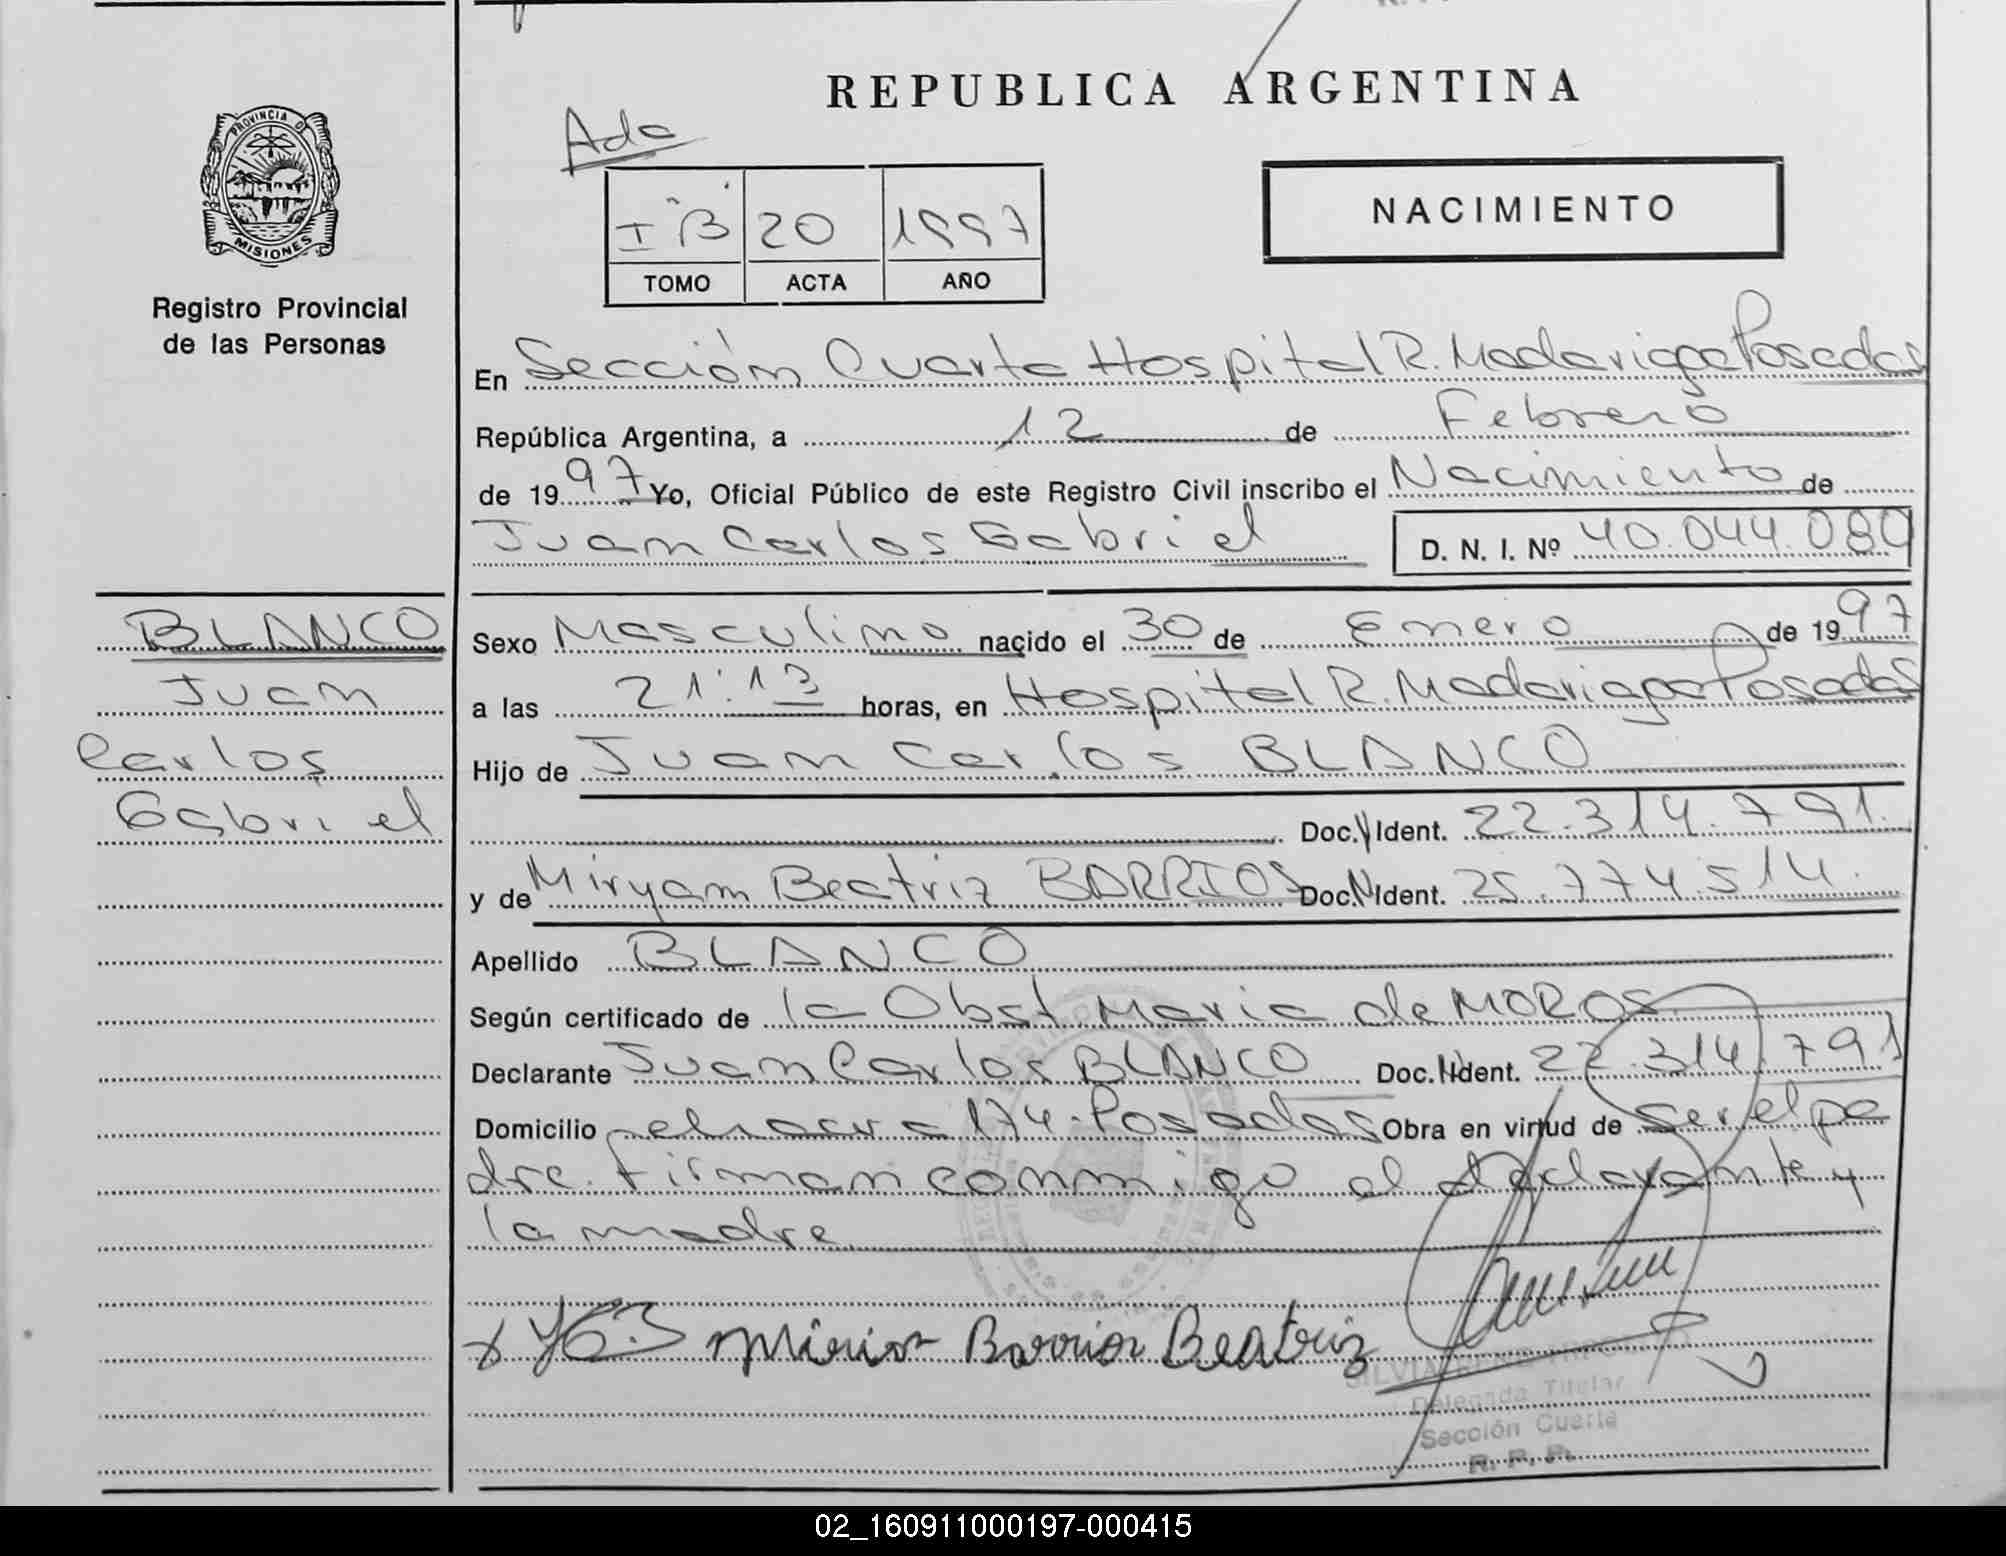 REPUBLICA ARGENTINA
Ada
PROVINCIA DE
MISIONES
Registro Provincial
de las Personas
I B 20 1997
TOMO ACTA AÑO
NACIMIENTO
En Sección Cuarta Hospital R. Madariaga Posadas
República Argentina, a 12 de Febrero
de 1997 Yo, Oficial Público de este Registro Civil inscribo el Nacimiento de
Juan Carlos Gabriel D. N. I. Nº 40.044.080
BLANCO
Juan
Carlos
Gabriel
Sexo Masculino nacido el 30 de Enero de 1997
a las 21:13 horas, en Hospital R. Madariaga Posadas
Hijo de Juan Carlos BLANCO
Doc. Ident. 22.314.791.
y de Miryam Beatriz BARRIOS Doc. N Ident. 25.774.514.
Apellido BLANCO
Según certificado de la Obst Maria de MOROS
Declarante Juan Carlos BLANCO Doc. Ident. 22.314.791
Domicilio 174. Posadas Obra en virtud de ser el pa
dre. firman conmigo el declarante y
la madre
Mirian Barrios Beatriz
Delegada Titular
Sección Cuarta
R. P. P.
02_160911000197-000415